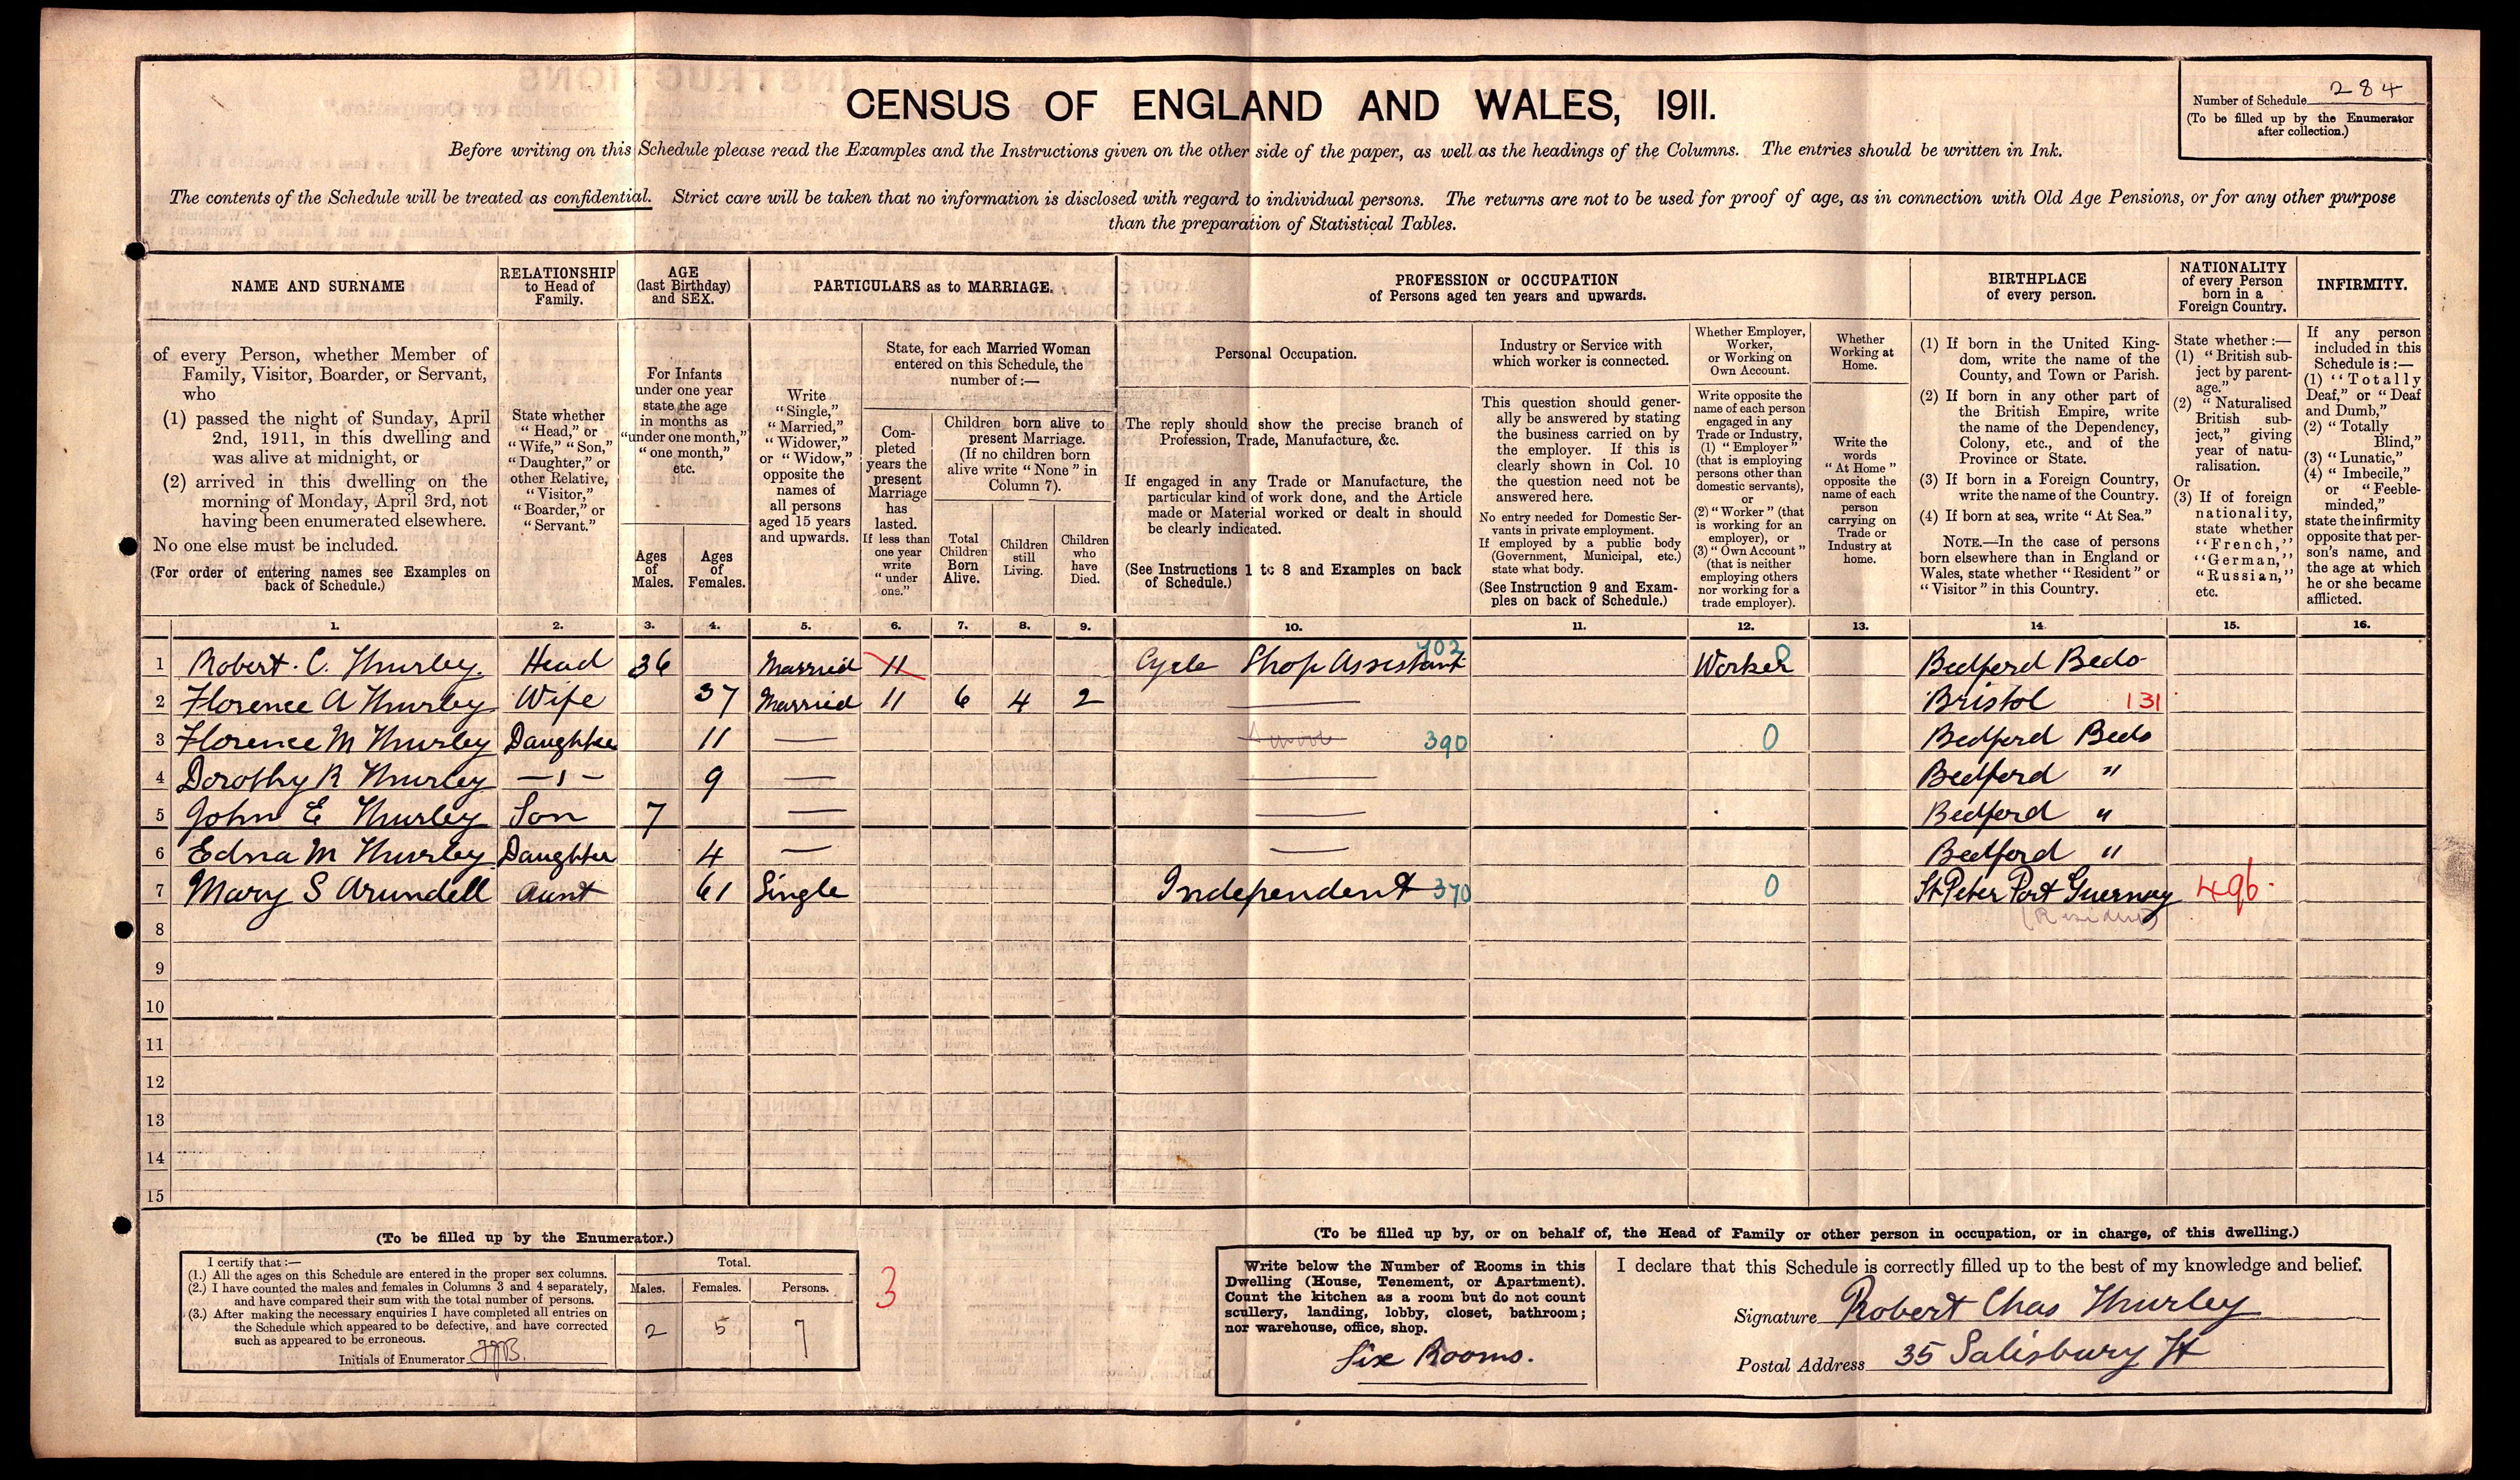 CENSUS OF ENGLAND AND WALES, 1911.
Number of Schedule 284
(To be filled up by the Enumerator
after collection.)
Before writing on this Schedule please read the Examples and the Instructions given on the other side of the paper, as well as the headings of the Columns. The entries should be written in Ink.
The contents of the Schedule will be treated as confidential. Strict care will be taken that no information is disclosed with regard to individual persons. The returns are not to be used for proof of age, as in connection with Old Age Pensions, or for any other purpose
than the preparation of Statistical Tables.
NAME AND SURNAME
of every Person, whether Member of
Family, Visitor, Boarder, or Servant,
who
(1) passed the night of Sunday, April
2nd, 1911, in this dwelling and
was alive at midnight, or
(2) arrived in this dwelling on the
morning of Monday, April 3rd, not
having been enumerated elsewhere.
No one else must be included.
(For order of entering names see Examples on
back of Schedule.)
RELATIONSHIP
to Head of
Family.
State whether
"Head," or
"Wife," "Son,"
"Daughter," or
other Relative,
"Visitor,"
"Boarder," or
"Servant."
AGE
(last Birthday)
and SEX.
For Infants
under one year
state the age
in months as
"under one month,"
"one month,"
etc.
Ages
of
Males.
Ages
of
Females.
PARTICULARS as to MARRIAGE.
Write
"Single,"
"Married,"
"Widower,"
or "Widow,"
opposite the
names of
all persons
aged 15 years
and upwards.
State, for each Married Woman
entered on this Schedule, the
number of:—
Com-
pleted
years the
present
Marriage
has
lasted.
If less than
one year
write
"under
one."
Children born alive to
present Marriage.
(If no children born
alive write "None" in
Column 7).
Total
Children
Born
Alive.
Children
still
Living.
Children
who
have
Died.
PROFESSION or OCCUPATION
of Persons aged ten years and upwards.
Personal Occupation.
The reply should show the precise branch of
Profession, Trade, Manufacture, &c.
If engaged in any Trade or Manufacture, the
particular kind of work done, and the Article
made or Material worked or dealt in should
be clearly indicated.
(See Instructions 1 to 8 and Examples on back
of Schedule.)
Industry or Service with
which worker is connected.
This question should gener-
ally be answered by stating
the business carried on by
the employer. If this is
clearly shown in Col. 10
the question need not be
answered here.
No entry needed for Domestic Ser-
vants in private employment.
If employed by a public body
(Government, Municipal, etc.)
state what body.
(See Instruction 9 and Exam-
ples on back of Schedule.)
Whether Employer,
Worker,
or Working on
Own Account.
Write opposite the
name of each person
engaged in any
Trade or Industry,
(1) "Employer"
(that is employing
persons other than
domestic servants),
or
(2) "Worker" (that
is working for an
employer), or
(3) "Own Account"
(that is neither
employing others
nor working for a
trade employer).
Whether
Working at
Home.
Write the
words
"At Home"
opposite the
name of each
person
carrying on
Trade or
Industry at
home.
BIRTHPLACE
of every person.
(1) If born in the United King-
dom, write the name of the
County, and Town or Parish.
(2) If born in any other part of
the British Empire, write
the name of the Dependency,
Colony, etc., and of the
Province or State.
(3) If born in a Foreign Country,
write the name of the Country.
(4) If born at sea, write "At Sea."
NOTE.—In the case of persons
born elsewhere than in England or
Wales, state whether "Resident" or
"Visitor" in this Country.
NATIONALITY
of every Person
born in a
Foreign Country.
State whether :—
(1) "British sub-
ject by parent-
age."
(2) "Naturalised
British sub-
ject," giving
year of natu-
ralisation.
Or
(3) If of foreign
nationality,
state whether
"French,"
"German,"
"Russian,"
etc.
INFIRMITY.
If any person
included in this
Schedule is :—
(1) "Totally
Deaf," or "Deaf
and Dumb,"
(2) "Totally
Blind,"
(3) "Lunatic,"
(4) "Imbecile,"
or "Feeble-
minded,"
state the infirmity
opposite that per-
son's name, and
the age at which
he or she became
afflicted.
1. 2. 3. 4. 5. 6. 7. 8. 9. 10. 11. 12. 13. 14. 15. 16.
1 Robert. C. Thurley. Head 36 Married 11 Cycle Shop Assistant 402 Worker 0 Bedford Beds
2 Florence A Thurley Wife 37 Married 11 6 4 2 — Bristol 131
3 Florence M Thurley Daughter 11 — 390 0 Bedford Beds
4 Dorothy R Thurley —"— 9 — — Bedford "
5 John E Thurley Son 7 — — Bedford "
6 Edna M Thurley Daughter 4 — — Bedford "
7 Mary S Arundell Aunt 61 Single Independent 370 0 St Peter Port Guernsey 496.
(Resident)
8
9
10
11
12
13
14
15
(To be filled up by the Enumerator.)
I certify that :—
(1.) All the ages on this Schedule are entered in the proper sex columns.
(2.) I have counted the males and females in Columns 3 and 4 separately,
and have compared their sum with the total number of persons.
(3.) After making the necessary enquiries I have completed all entries on
the Schedule which appeared to be defective, and have corrected
such as appeared to be erroneous.
Initials of Enumerator
Total.
Males. Females. Persons.
2 5 7
3
(To be filled up by, or on behalf of, the Head of Family or other person in occupation, or in charge, of this dwelling.)
Write below the Number of Rooms in this
Dwelling (House, Tenement, or Apartment).
Count the kitchen as a room but do not count
scullery, landing, lobby, closet, bathroom;
nor warehouse, office, shop.
Six Rooms.
I declare that this Schedule is correctly filled up to the best of my knowledge and belief.
Signature Robert Chas Thurley
Postal Address 35 Salisbury St